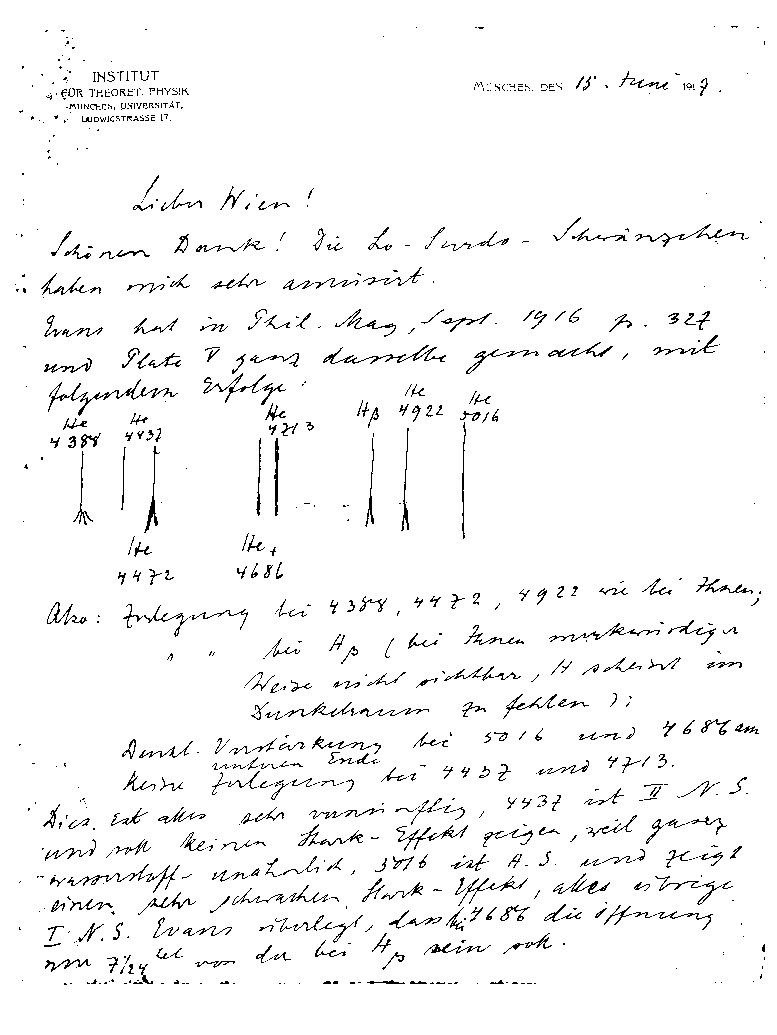 INSTITUT
FÜR THEORET. PHYSIK
MÜNCHEN, UNIVERSITÄT,
LUDWIGSTRASSE 17.
MÜNCHEN, DEN 15. Juni 1917.
Lieber Wien!
Schönen Dank! Die Lo-Surdo-Schwänzchen
haben mich sehr amüsirt.
Evans hat in Phil. Mag, Sept. 1916 p. 327
und Plate V ganz dasselbe gemacht, mit
folgendem Erfolge:
He 4388 He 4437 He 4713 Hβ He 4922 He 5016
He 4472 He+ 4686
Also: Zerlegung bei 4388, 4472, 4922 wie bei Ihnen;
" " bei Hβ (bei Ihnen merkwürdiger
Weise nicht sichtbar, H scheint im
Dunkelraum zu fehlen);
Deutl. Verstärkung bei 5016 und 4686 am
unteren Ende
Keine Zerlegung bei 4437 und 4713.
Dies ist alles sehr vernünftig, 4437 ist II N.S.
und soll keinen Stark-Effekt zeigen, weil ganz
wasserstoff-unähnlich, 5016 ist H.S. und zeigt
einen sehr schwachen Stark-Effekt, alles übrige
I N.S. Evans überlegt, dass bei 4686 die Öffnung
nur 7/24tel von der bei Hβ sein soll.